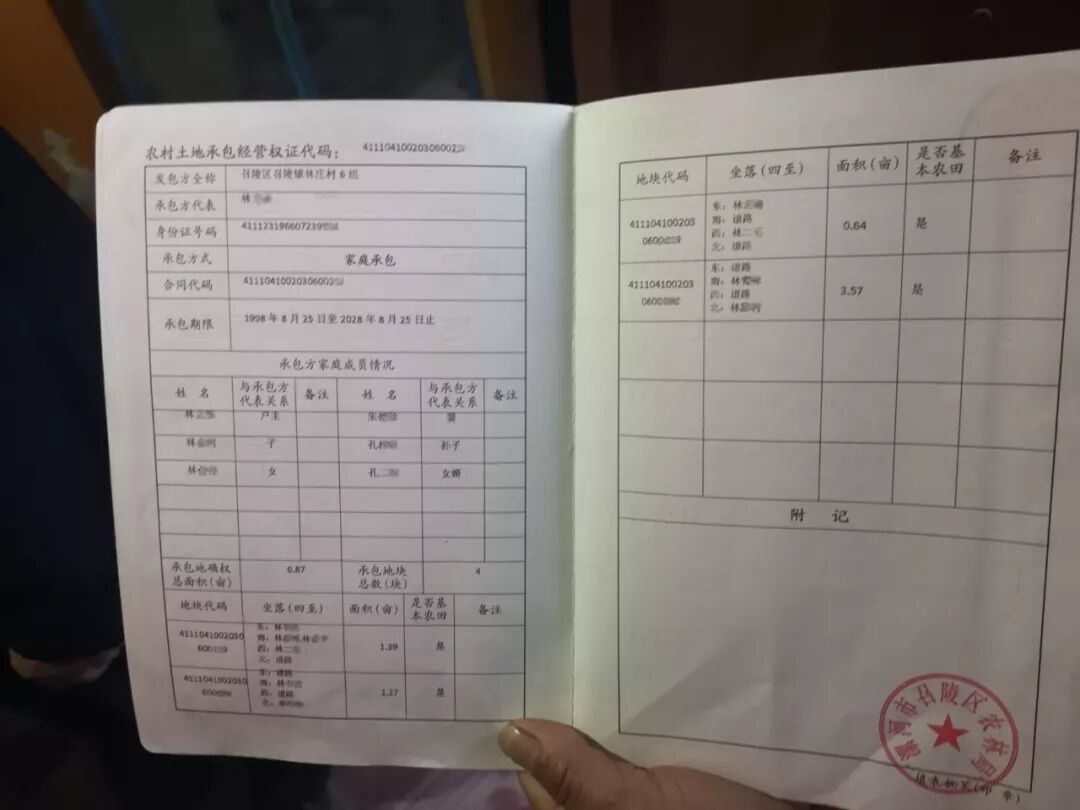 农村土地承包经营权证代码：4111041002030600
发包方全称 召陵区召陵镇林庄村6组
承包方代表 林
身份证号码 411123196607239
承包方式 家庭承包
合同代码 4111041002030600
承包期限 1998年8月25日至2028年8月25日止
承包方家庭成员情况
姓 名 与承包方代表关系 备注 姓 名 与承包方代表关系 备注
林 户主 朱 妻
林 子 孔 孙子
林 女 孔二 女婿
承包地确权总面积(亩) 6.87 承包地块总数(块) 4
地块代码 坐落(四至) 面积(亩) 是否基本农田 备注
4111041002030600 东：林 南：林 西：林二 北：道路 1.39 是
4111041002030600 东：道路 南：林 西：道路 北： 1.27 是
地块代码 坐落(四至) 面积(亩) 是否基本农田 备注
4111041002030600 东：林 南：道路 西：林二 北：道路 0.64 是
4111041002030600 东：道路 南：林 西：道路 北：林 3.57 是
附 记
漯河市召陵区农林局
填表机关(印 章)